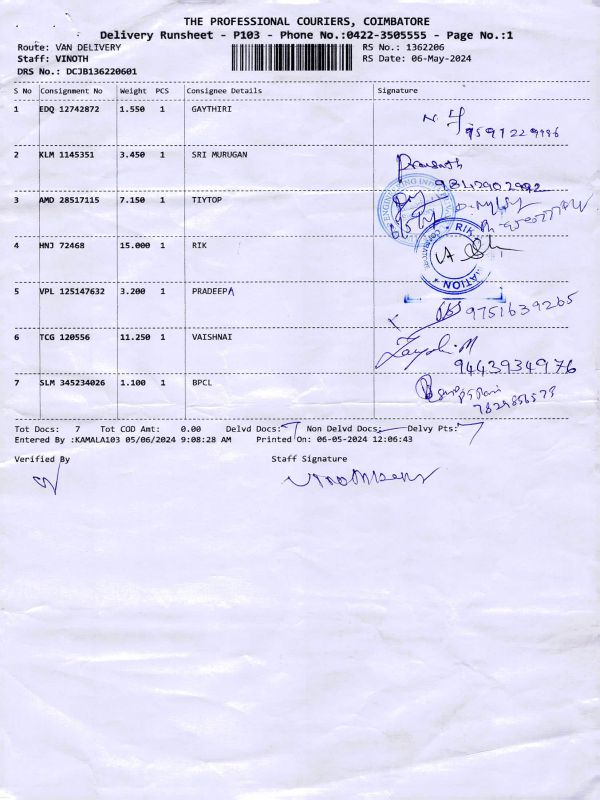 THE PROFESSIONAL COURIERS, COIMBATORE
Delivery Runsheet - P103 - Phone No.:0422-3505555 - Page No.:1
Route: VAN DELIVERY RS No.: 1362206
Staff: VINOTH RS Date: 06-May-2024
DRS No.: DCJB136220601
S No Consignment No Weight PCS Consignee Details Signature
1 EDQ 12742872 1.550 1 GAYTHIRI
2 KLM 1145351 3.450 1 SRI MURUGAN
Prasanth
9842902992
3 AMD 28517115 7.150 1 TIYTOP
4 HNJ 72468 15.000 1 RIK
RIK
5 VPL 125147632 3.200 1 PRADEEPA
9751639265
6 TCG 120556 11.250 1 VAISHNAI
9443934976
7 SLM 345234026 1.100 1 BPCL
Tot Docs: 7 Tot COD Amt: 0.00 Delvd Docs: 7 Non Delvd Docs: - Delvy Pts: 7
Entered By :KAMALA103 05/06/2024 9:08:28 AM Printed On: 06-05-2024 12:06:43
Verified By Staff Signature